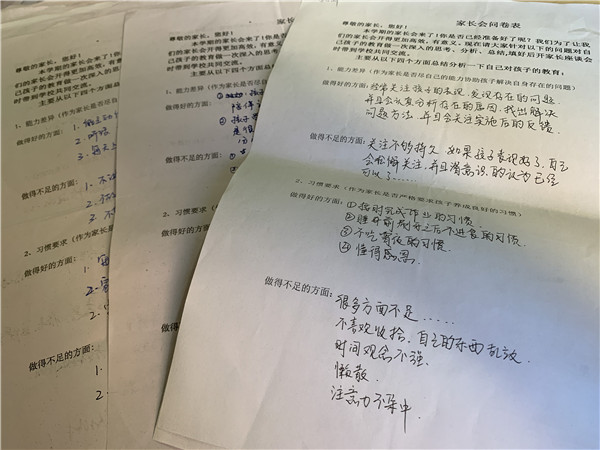 家长会问卷表
尊敬的家长，您好！
本学期的家长会来了！你是否已经准备好了呢？我们为了让我
们的家长会开得更加高效，有意义，现在请大家针对以下的问题对自
己孩子的教育做一次深入的思考、分析、总结，填好后开家长座谈会
时带到学校共同交流。
主要从以下四个方面总结分析一下自己对孩子的教育：
1、能力差异（作为家长是否尽自己的能力协助孩子解决自身存在的问题）
做得好的方面：经常关注孩子的表现，发现存在的问题
并且会认真分析存在的原因，找出解决
问题方法，并且会关注实施后的反馈．
做得不足的方面：关注不够持久，如果孩子表现好了，自己
会松懈关注，并且潜意识的认为已经
可以了……
2、习惯要求（作为家长是否严格要求孩子养成良好的习惯）
做得好的方面：①按时完成作业的习惯．
②睡前刷牙之后不进食的习惯
③不吃宵夜的习惯．
④懂得感恩．
做得不足的方面：很多方面不足……
不喜欢收拾，自己的东西乱放．
时间观念不强．
懒散．
注意力不集中．
尊敬的家长，您好！
本学期的家长会来了！
们的家长会开得更加高效，有
己孩子的教育做一次深入的
时带到学校共同交流。
主要从以下四个方面
1、能力差异（作为家长是否
做得好的方面：
做得不足的方面：
2、习惯要求（作为家长是
做得好的方面：
做得不足的方面：
尊敬的家长，您好！
本学期的家长会来
们的家长会开得更加高
己孩子的教育做一次深
时带到学校共同交流
主要从以下四
1、能力差异（作为家长
做得好的方面：
做得不足的方面：
2、习惯要求（作为
做得好的方面：
做得不足的方面：